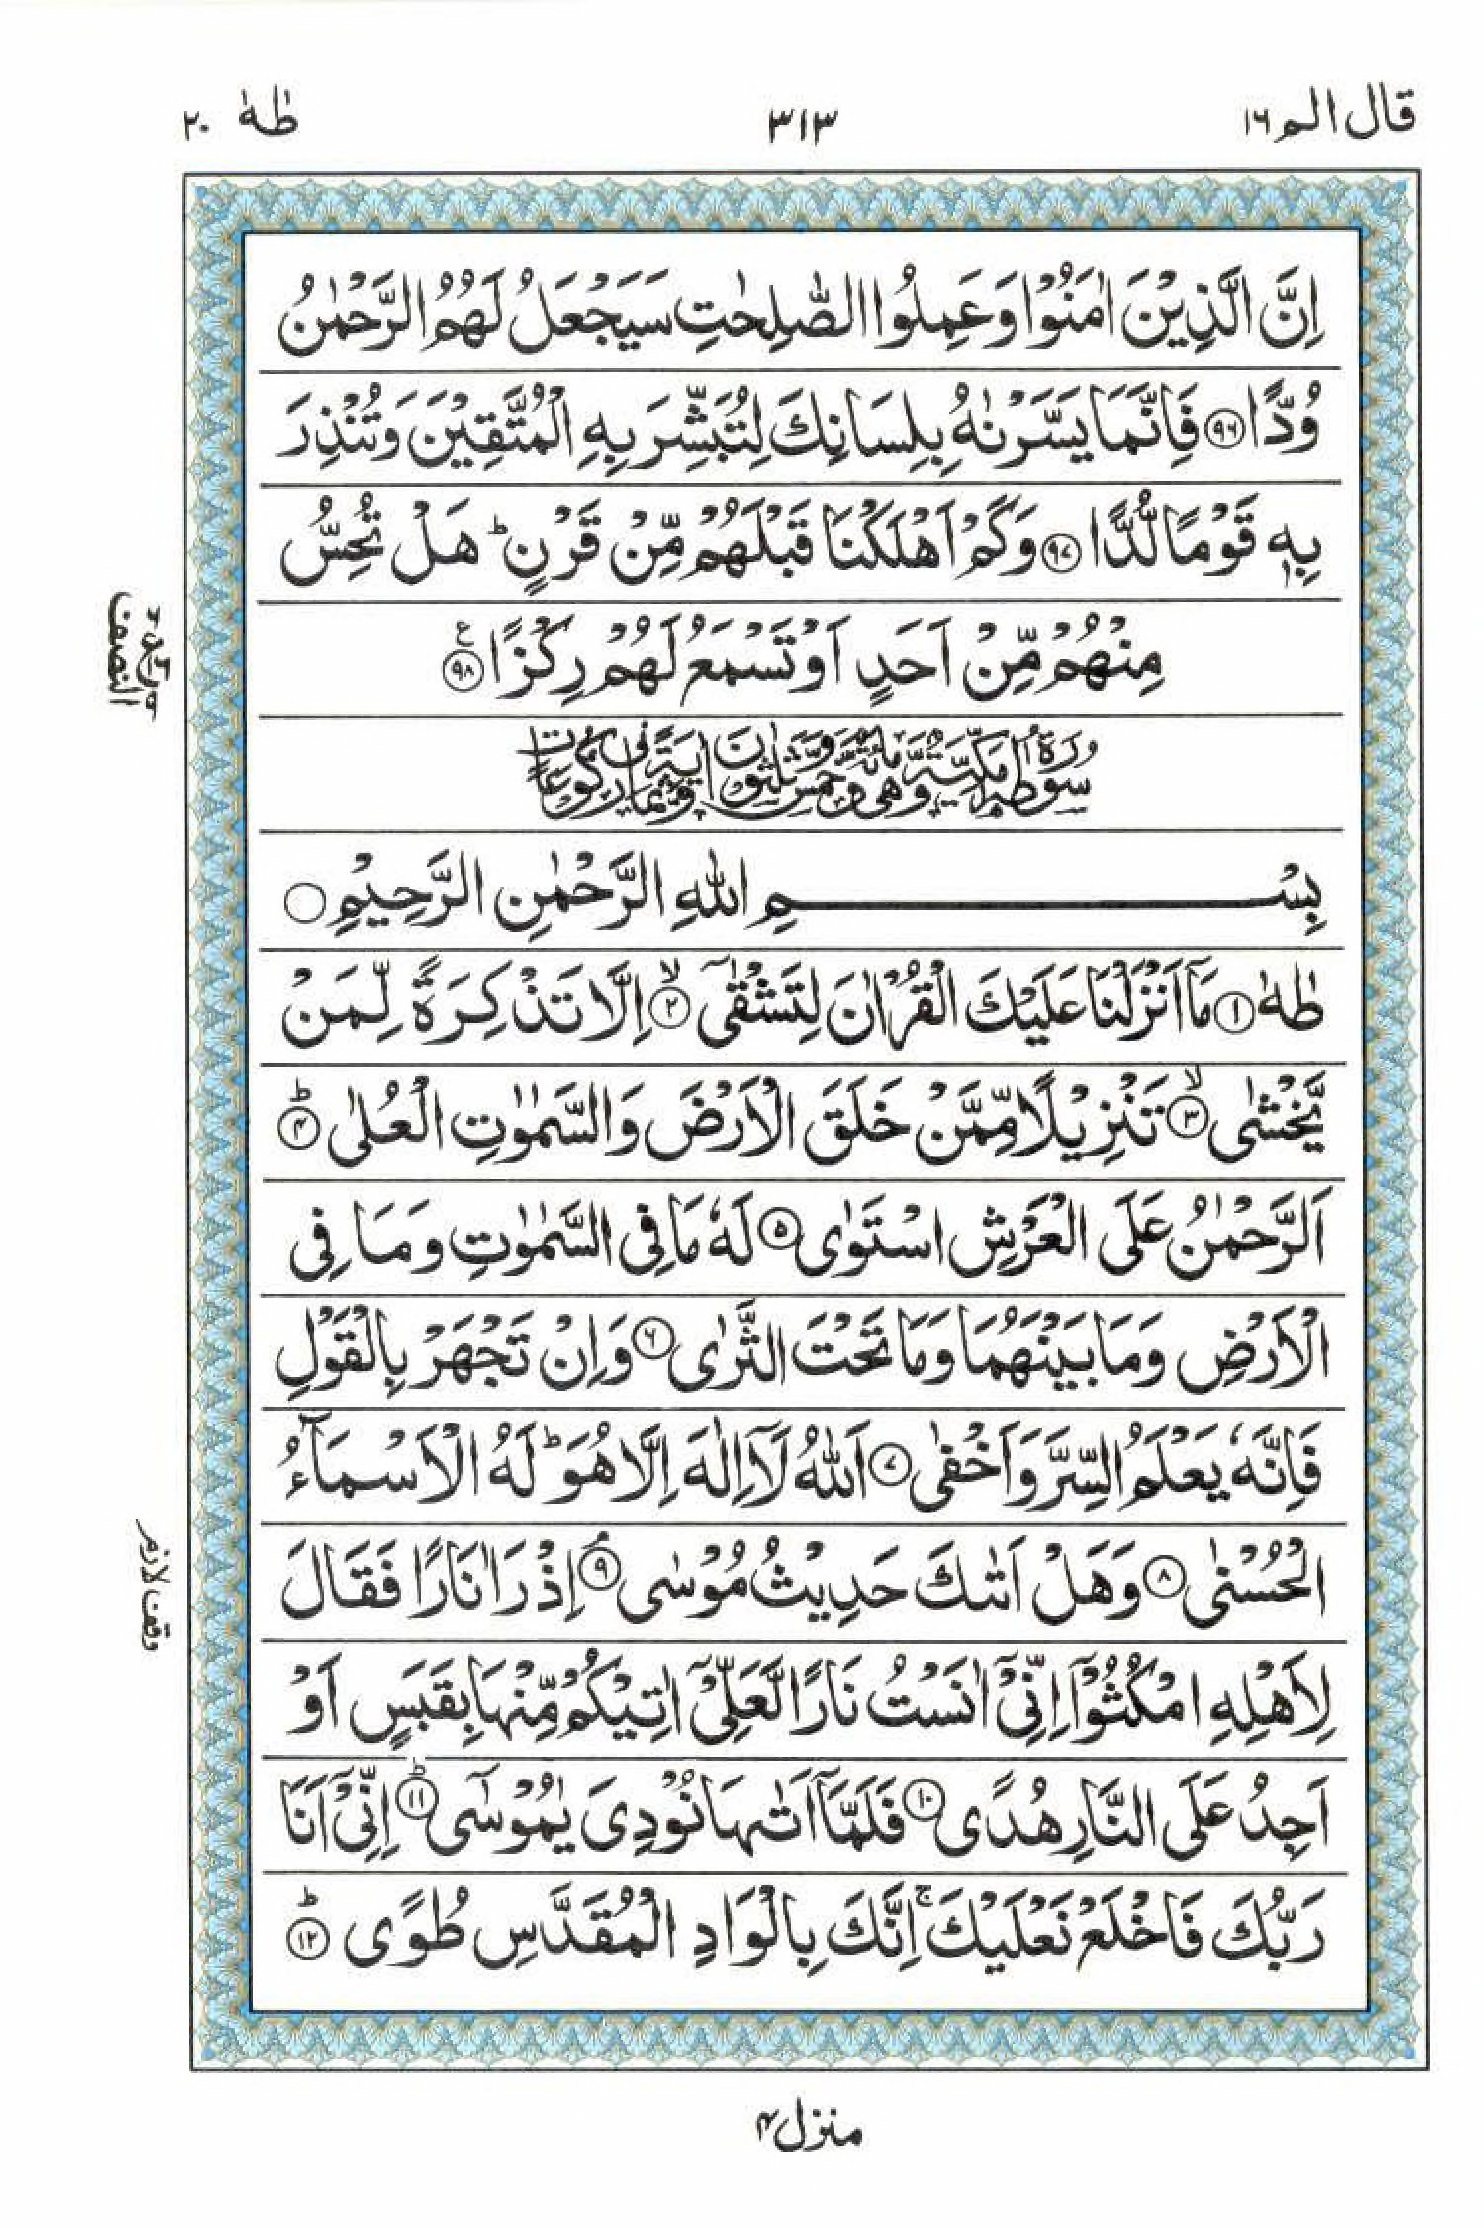 قال الم ١٦
٣١٣
طٰهٰ ٢٠
اِنَّ الَّذِیْنَ اٰمَنُوْا وَعَمِلُوا الصّٰلِحٰتِ سَیَجْعَلُ لَهُمُ الرَّحْمٰنُ
وُدًّا ﴿٩٦﴾ فَاِنَّمَا یَسَّرْنٰهُ بِلِسَانِكَ لِتُبَشِّرَ بِهِ الْمُتَّقِیْنَ وَتُنْذِرَ
بِهٖ قَوْمًا لُّدًّا ﴿٩٧﴾ وَكَمْ اَهْلَكْنَا قَبْلَهُمْ مِّنْ قَرْنٍ ؕ هَلْ تُحِسُّ
مِنْهُمْ مِّنْ اَحَدٍ اَوْ تَسْمَعُ لَهُمْ رِكْزًا ﴿٩٨﴾ ع
سُوْرَةُ طٰهٰ مَكِّیَّةٌ وَّهِیَ مِائَةٌ وَّخَمْسٌ وَّثَلٰثُوْنَ اٰیَةً وَّثَمَانِیْ رُكُوْعَاتٍ
بِسْمِ اللّٰهِ الرَّحْمٰنِ الرَّحِیْمِ
طٰهٰ ﴿١﴾ مَاۤ اَنْزَلْنَا عَلَیْكَ الْقُرْاٰنَ لِتَشْقٰۤی ﴿٢﴾ۙ اِلَّا تَذْكِرَةً لِّمَنْ
یَّخْشٰی ﴿٣﴾ۙ تَنْزِیْلًا مِّمَّنْ خَلَقَ الْاَرْضَ وَالسَّمٰوٰتِ الْعُلٰی ﴿٤﴾ؕ
اَلرَّحْمٰنُ عَلَی الْعَرْشِ اسْتَوٰی ﴿٥﴾ لَهٗ مَا فِی السَّمٰوٰتِ وَمَا فِی
الْاَرْضِ وَمَا بَیْنَهُمَا وَمَا تَحْتَ الثَّرٰی ﴿٦﴾ وَاِنْ تَجْهَرْ بِالْقَوْلِ
فَاِنَّهٗ یَعْلَمُ السِّرَّ وَاَخْفٰی ﴿٧﴾ اَللّٰهُ لَاۤ اِلٰهَ اِلَّا هُوَ ؕ لَهُ الْاَسْمَآءُ
الْحُسْنٰی ﴿٨﴾ وَهَلْ اَتٰىكَ حَدِیْثُ مُوْسٰی ﴿٩﴾ۘ اِذْ رَاٰ نَارًا فَقَالَ
لِاَهْلِهِ امْكُثُوْۤا اِنِّیْۤ اٰنَسْتُ نَارًا لَّعَلِّیْۤ اٰتِیْكُمْ مِّنْهَا بِقَبَسٍ اَوْ
اَجِدُ عَلَی النَّارِ هُدًی ﴿١٠﴾ فَلَمَّاۤ اَتٰىهَا نُوْدِیَ یٰمُوْسٰۤی ﴿١١﴾ؕ اِنِّیْۤ اَنَا
رَبُّكَ فَاخْلَعْ نَعْلَیْكَ ۚ اِنَّكَ بِالْوَادِ الْمُقَدَّسِ طُوًی ﴿١٢﴾ؕ
النصف
وقف لازم
منزل ٤